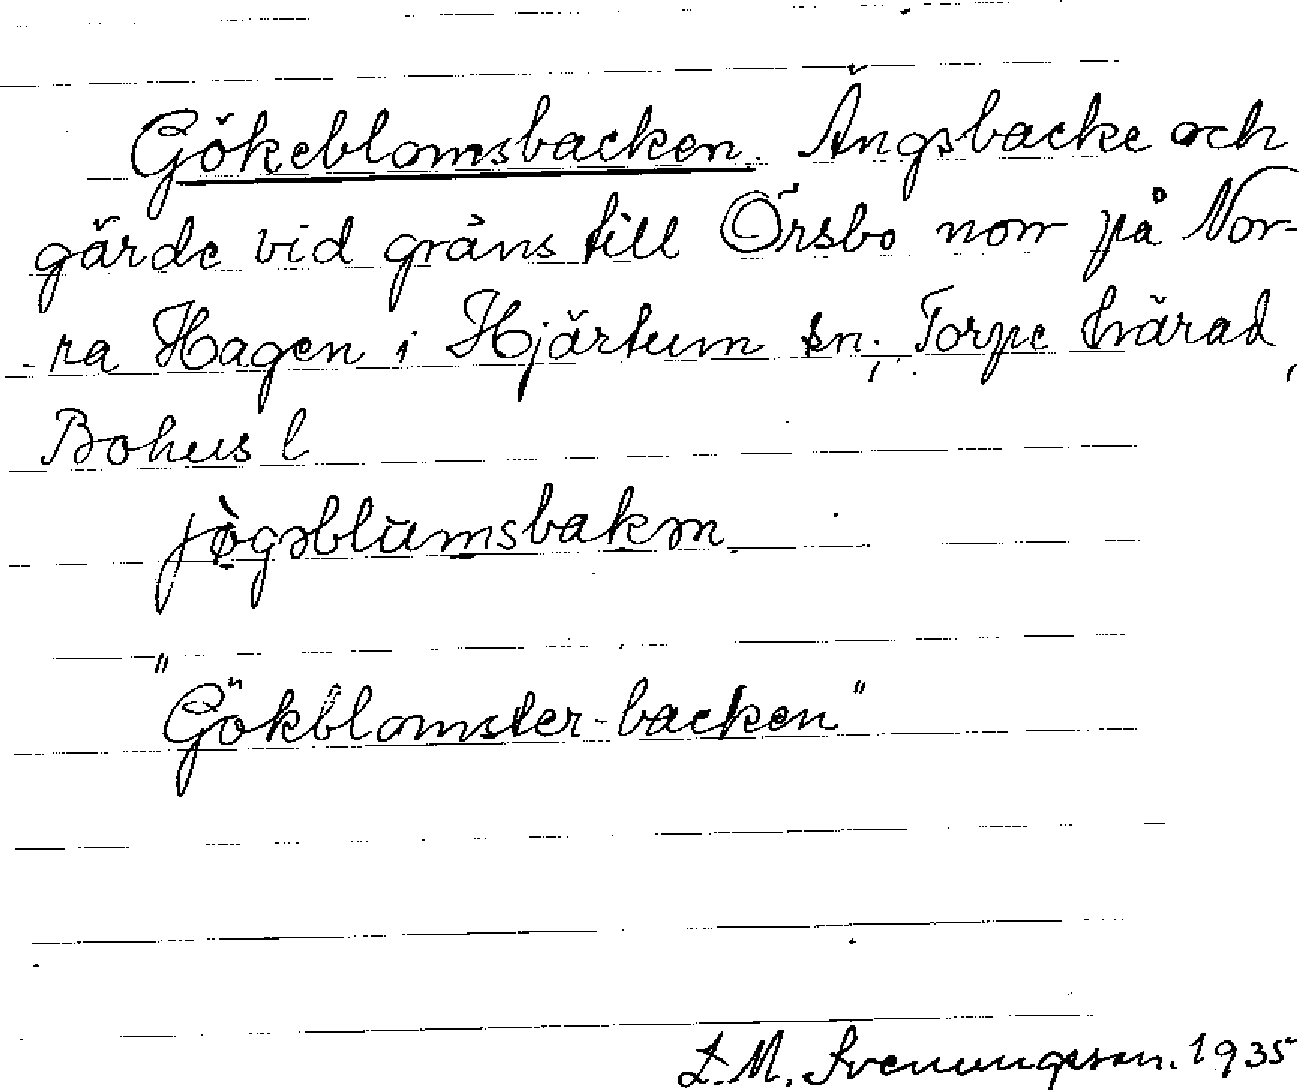 Gökeblomsbacken. Ängsbacke och
gärde vid gräns till Örsbo norr på Nor-
ra Hagen i Hjärtum sn; Torpe härad,
Bohus l
"Gökblomster-backen"
L.M. Svenungsson. 1935